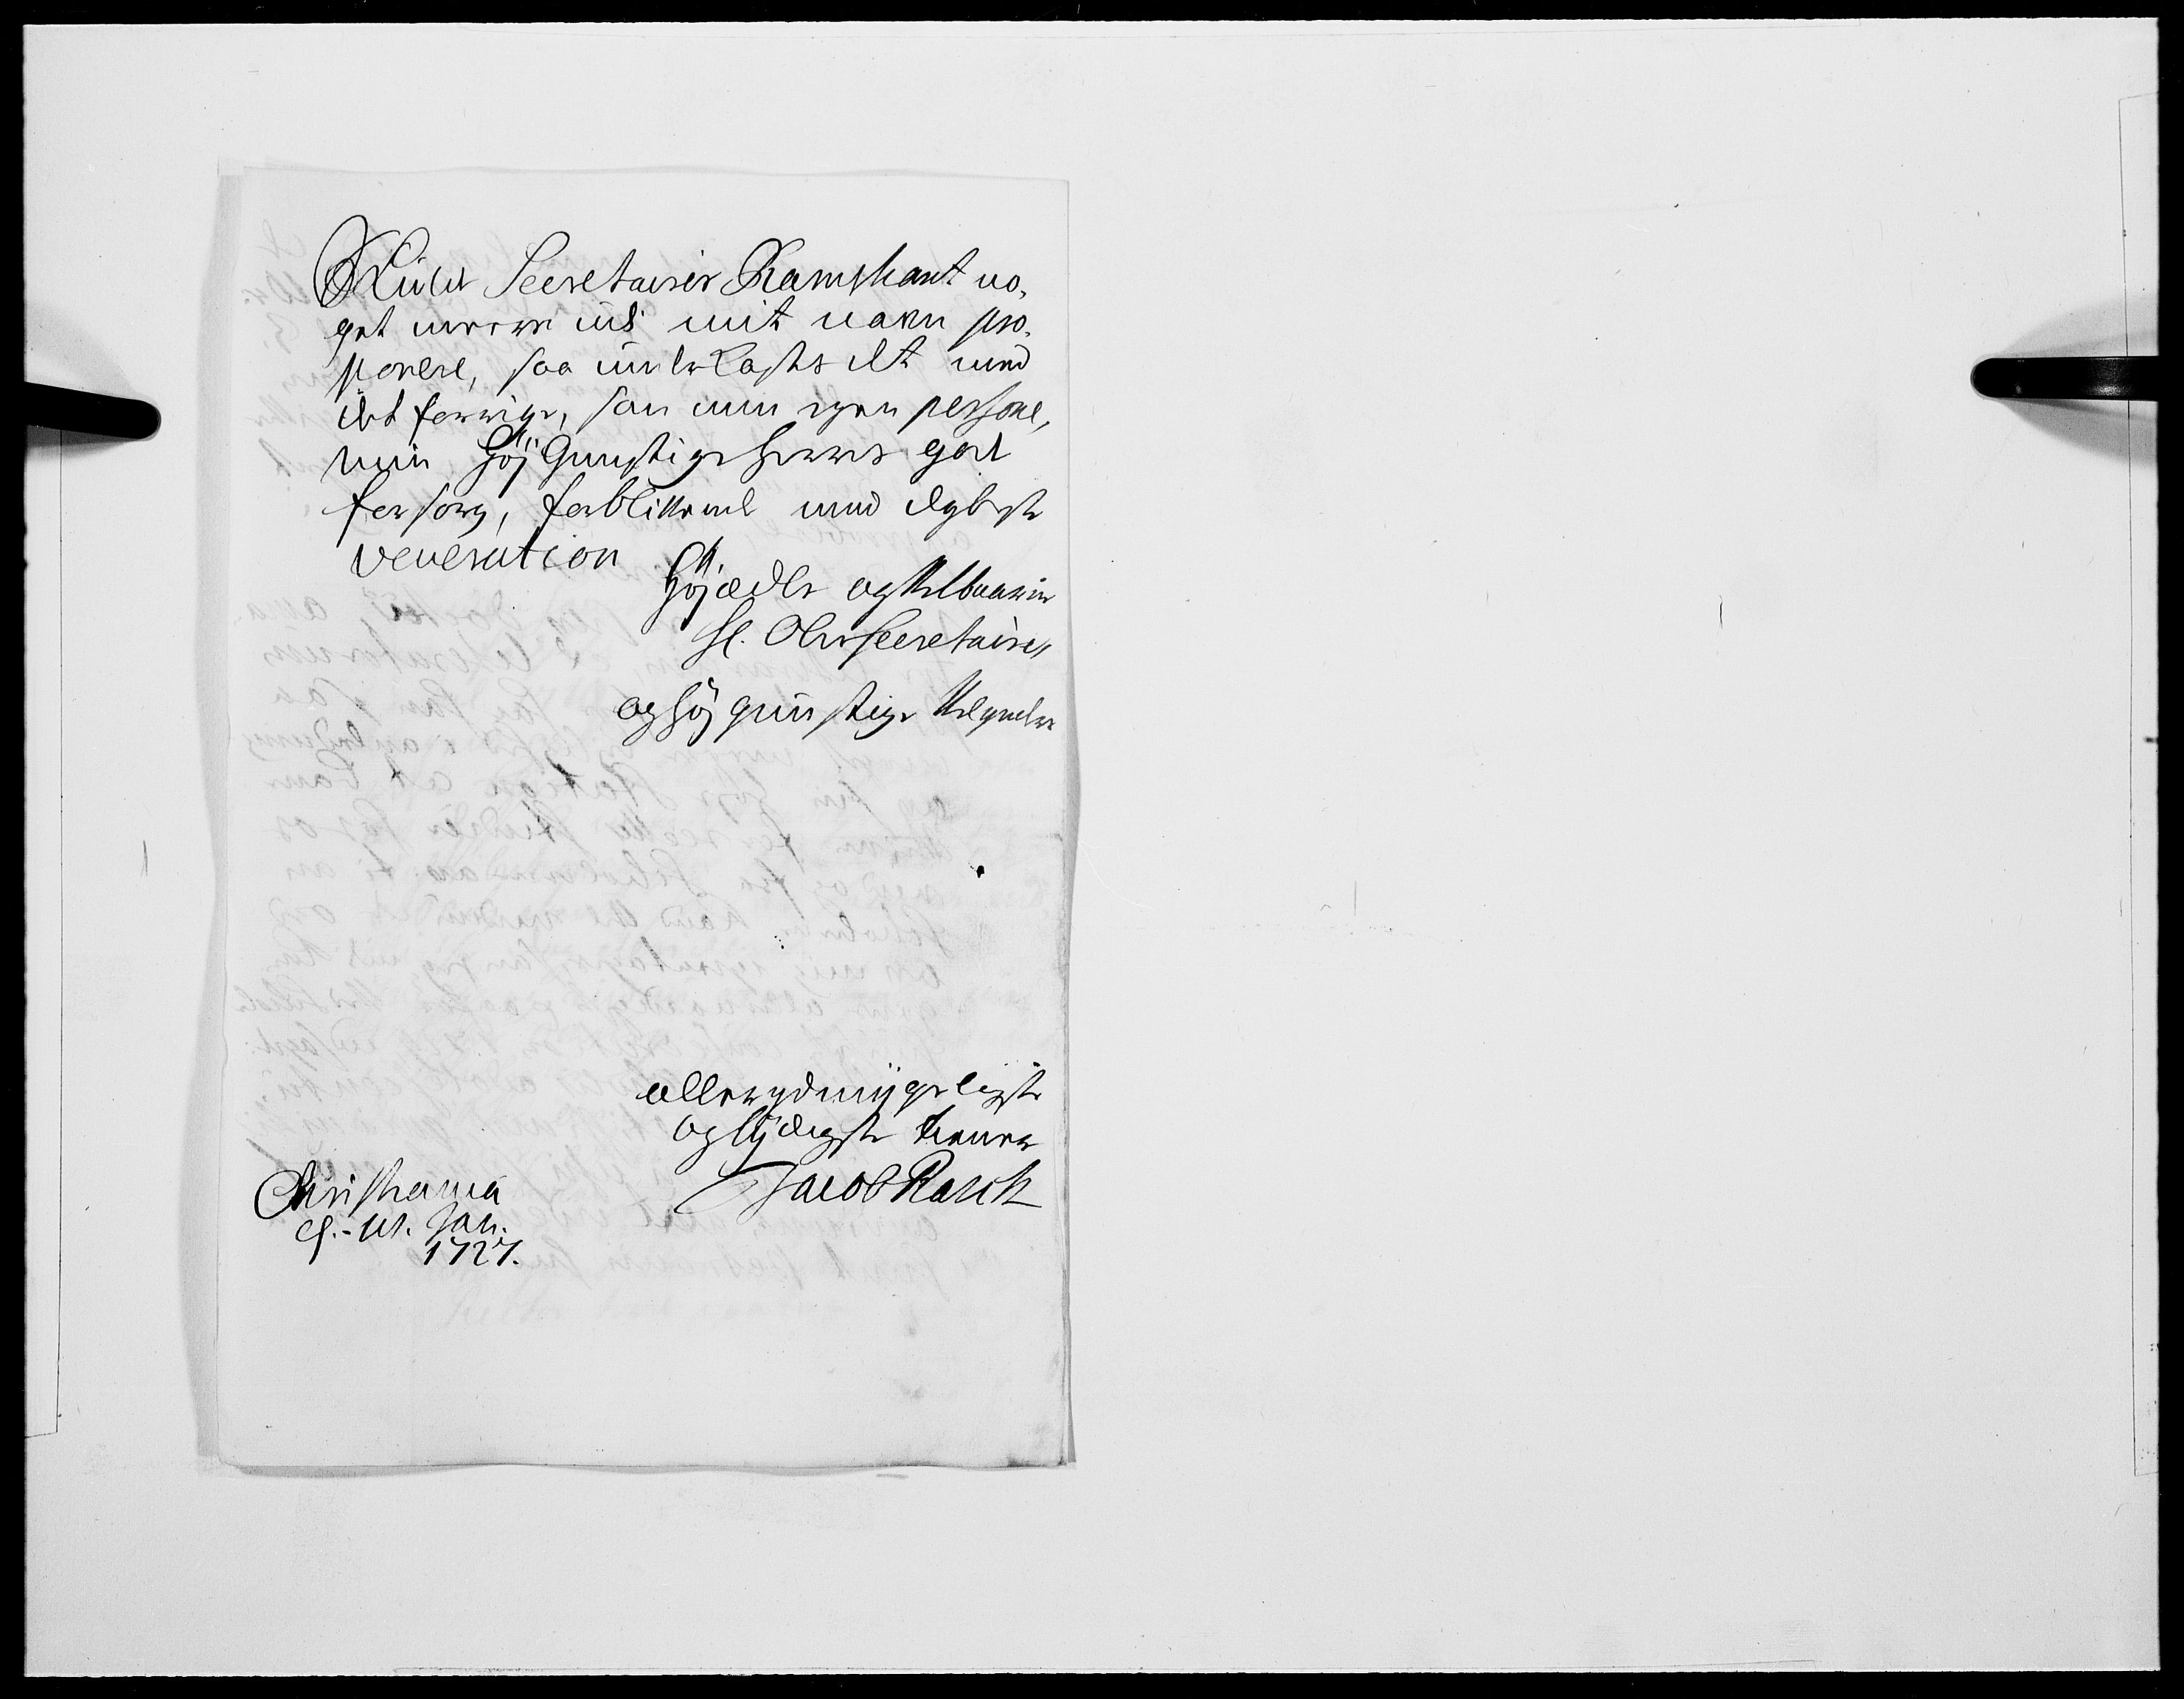 Skulde Secretairer Ramshart no,
get mere udi mit nafn pro,
ponere, saa underkastes det med
det forrige, som min egen persone,
min HöjGunstige Herres god
forsorg, forblifvend med dybeste
veneration
Höjædle og Velbaarne
Hr. Ober Secretaires
og höjgunstige Velyndere
allerydmygeligste
og lydigste tienere
Jacob Rasch
Christiania
d. - ut. Jan.
1727.